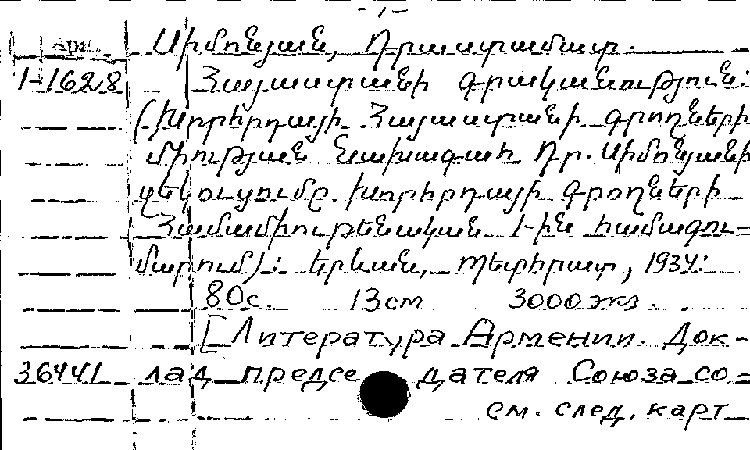 -1-
Арм. Սիմոնյան, Դրաստամատ.
1-1628 Հայաստանի գրականություն:
(Խորհրդայի Հայաստանի գրողների
միության նախագահ Դր. Սիմոնյանի
զեկուցումը. խորհրդայի գրողների
Համամիութենական 1-ին համագու-
մարում): Երևան, Պետհրատ, 1934:
80с. 13см 3000экз.
[Литература Армении. Док-
36441 лад предсе дателя Союза со-
см. след. карт